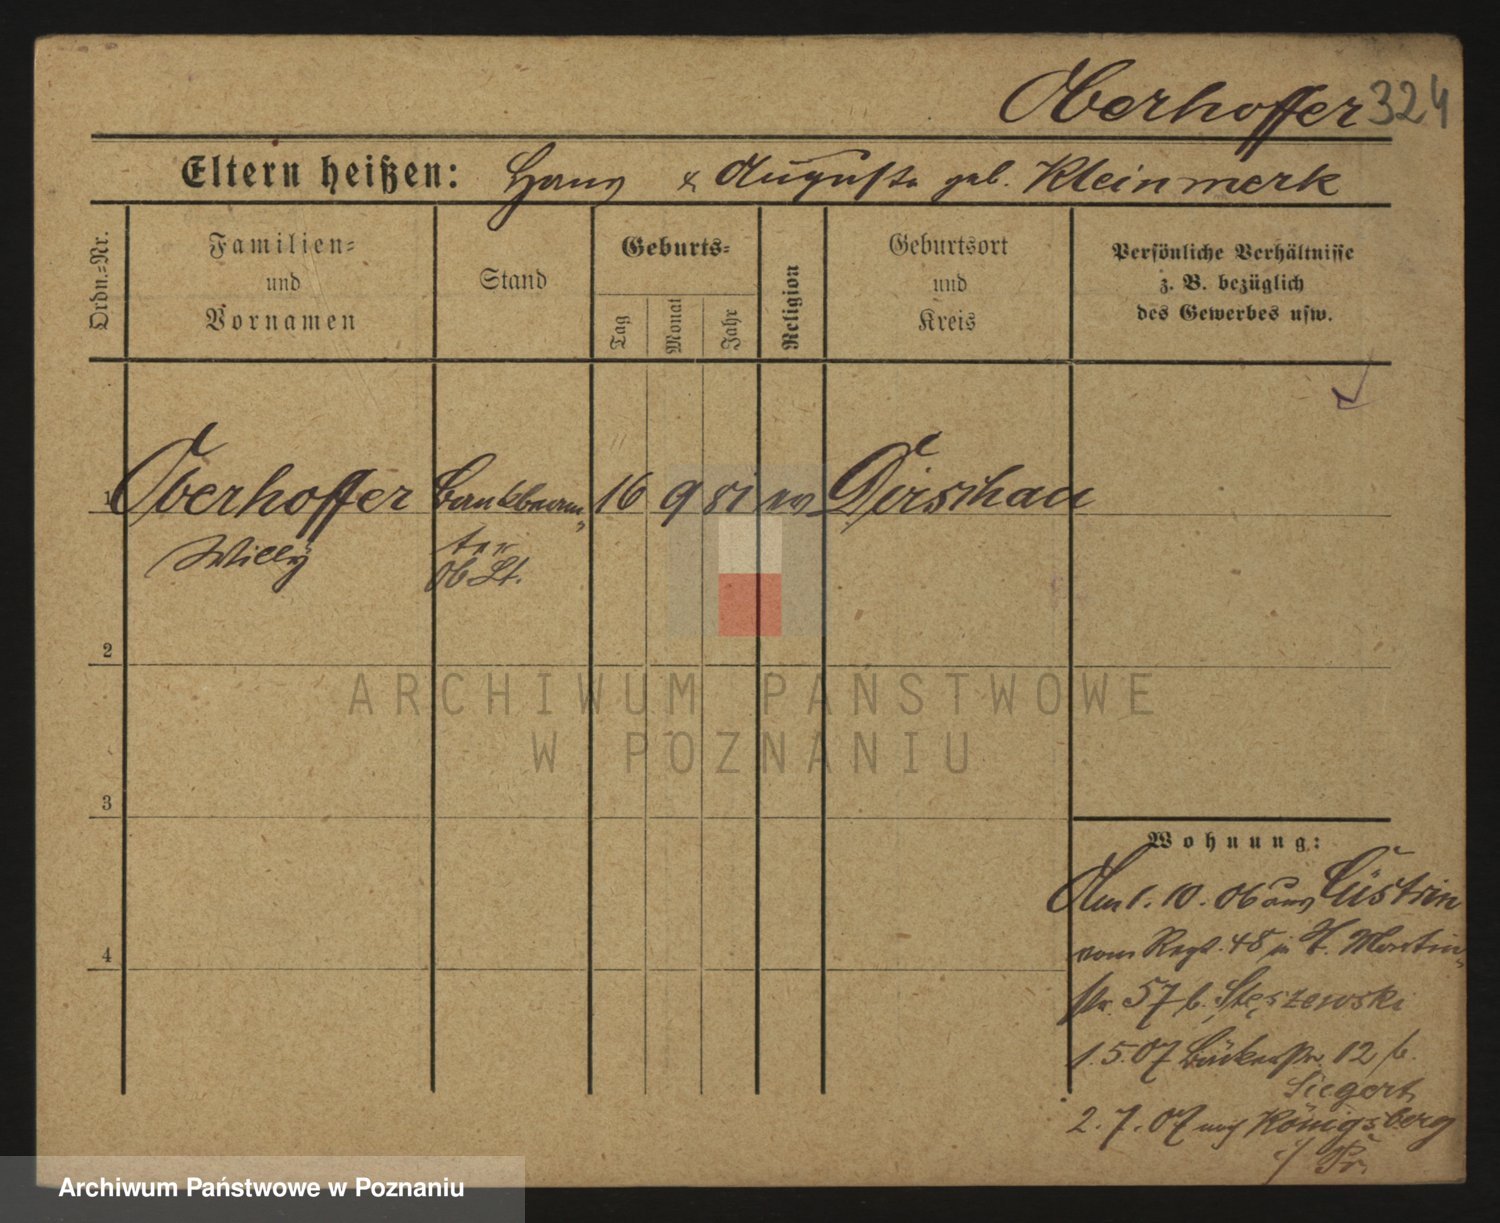 Oberhoffer 324
Eltern heißen: Hans & Auguste geb. Kleinmerk
Ordn.-Nr.
Familien-
und
Vornamen
Stand
Geburts-
Tag
Monat
Jahr
Religion
Geburtsort
und
Kreis
Persönliche Verhältnisse
z. B. bezüglich
des Gewerbes usw.
1 Oberhoffer Bankbeam- 16 9 81 ev Dirschau
Willy ter
Ob Lt.
2
3
4
Wohnung:
Am 1. 10. 06 aus Cüstrin
vom Regt. 48 in St. Martin-
str. 57 b. Stęszewski
1.5.07 Bäckerstr. 12 b.
Siegert
2.7.07 nach Königsberg
i/ Pr.
ARCHIWUM PAŃSTWOWE
W POZNANIU
Archiwum Państwowe w Poznaniu